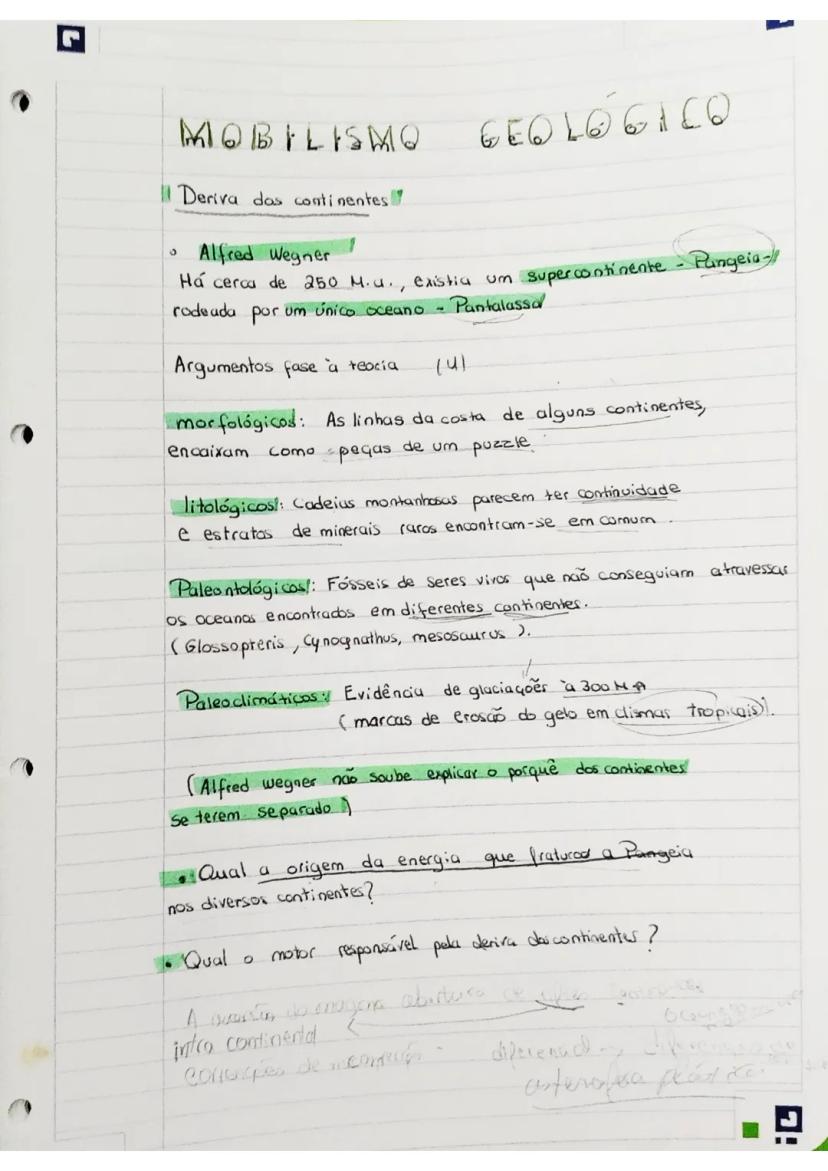 MOBILISMO GEOLÓGICO
"Deriva dos continentes"
Alfred Wegner
Há cerca de 250 M.a., existia um supercontinente - Pangeia-
rodeada por um único oceano - Pantalassa
Argumentos fase à teoria (4)
morfológicos: As linhas da costa de alguns continentes,
encaixam como peças de um puzzle.
litológicos: Cadeias montanhosas parecem ter continuidade
e estratos de minerais raros encontram-se em comum.
Paleontológicos: Fósseis de seres vivos que não conseguiam atravessar
os oceanos encontrados em diferentes continentes.
(Glossopteris, Cynognathus, mesosaurus).
Paleoclimáticos: Evidência de glaciações à 300 M A
(marcas de erosão do gelo em climas tropicais).
(Alfred Wegner não soube explicar o porquê dos continentes
se terem separado)
• Qual a origem da energia que fraturou a Pangeia
nos diversos continentes?
• Qual o motor responsável pela deriva dos continentes?
A abertura de
intra continental
diferencial →